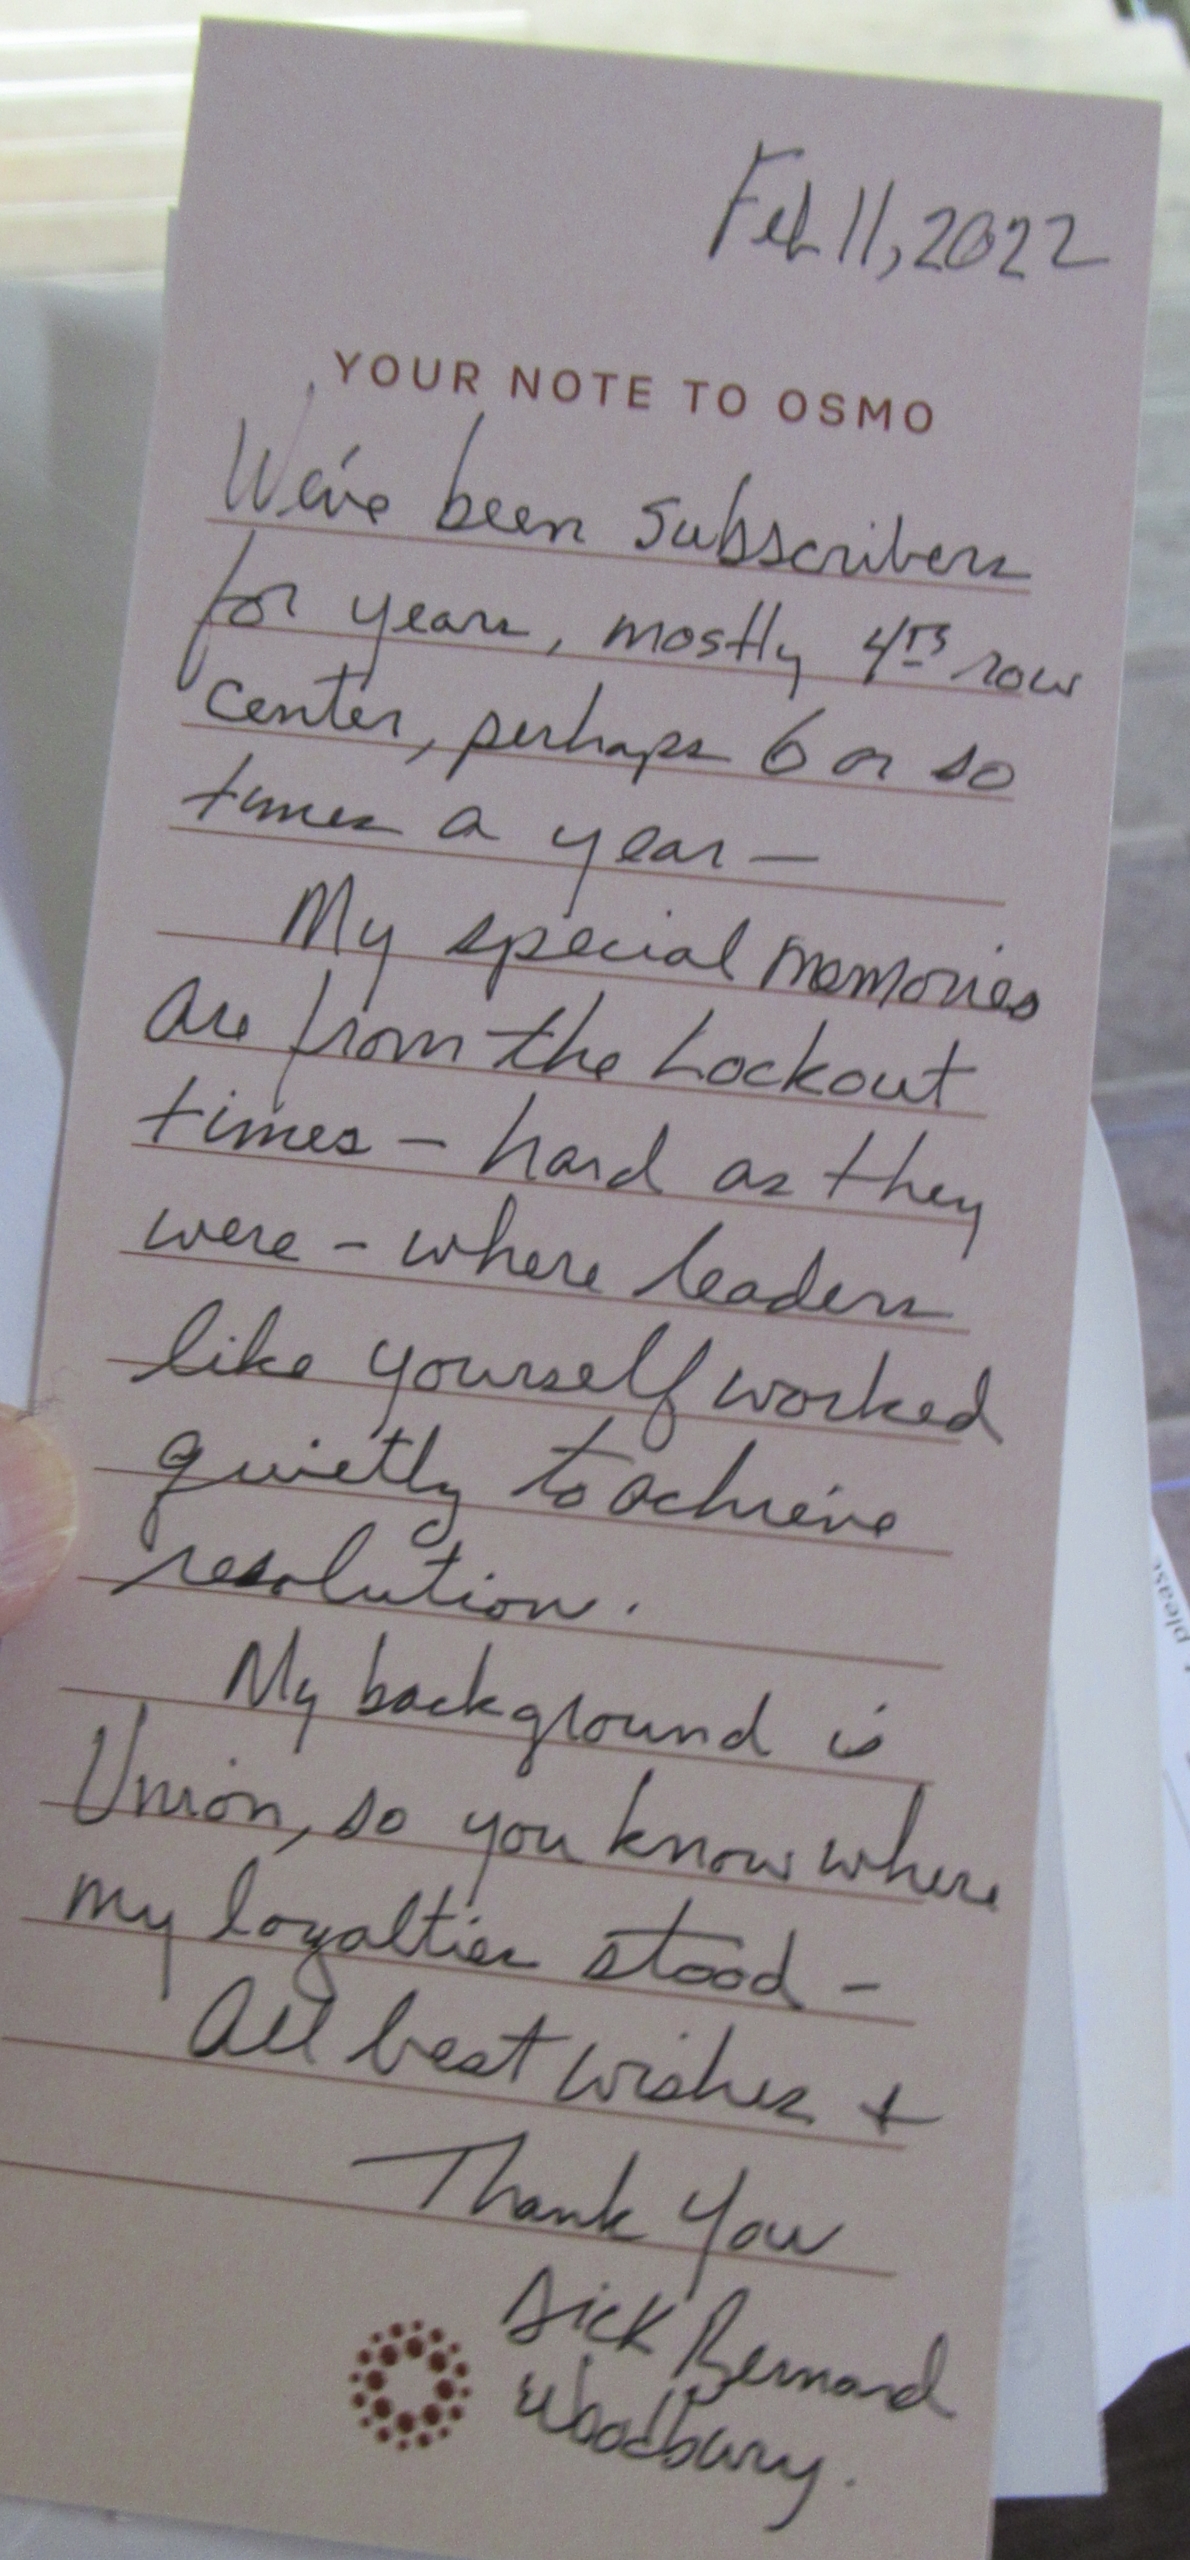 Feb 11, 2022
YOUR NOTE TO OSMO
We've been subscribers
for years, mostly 4th row
center, perhaps 6 or so
times a year —
My special memories
are from the Lockout
times – hard as they
were – where leaders
like yourself worked
quietly to achieve
resolution.
My background is
Union, so you know where
my loyalties stood –
All best wishes +
Thank You
Dick Bernard
Woodbury.
please